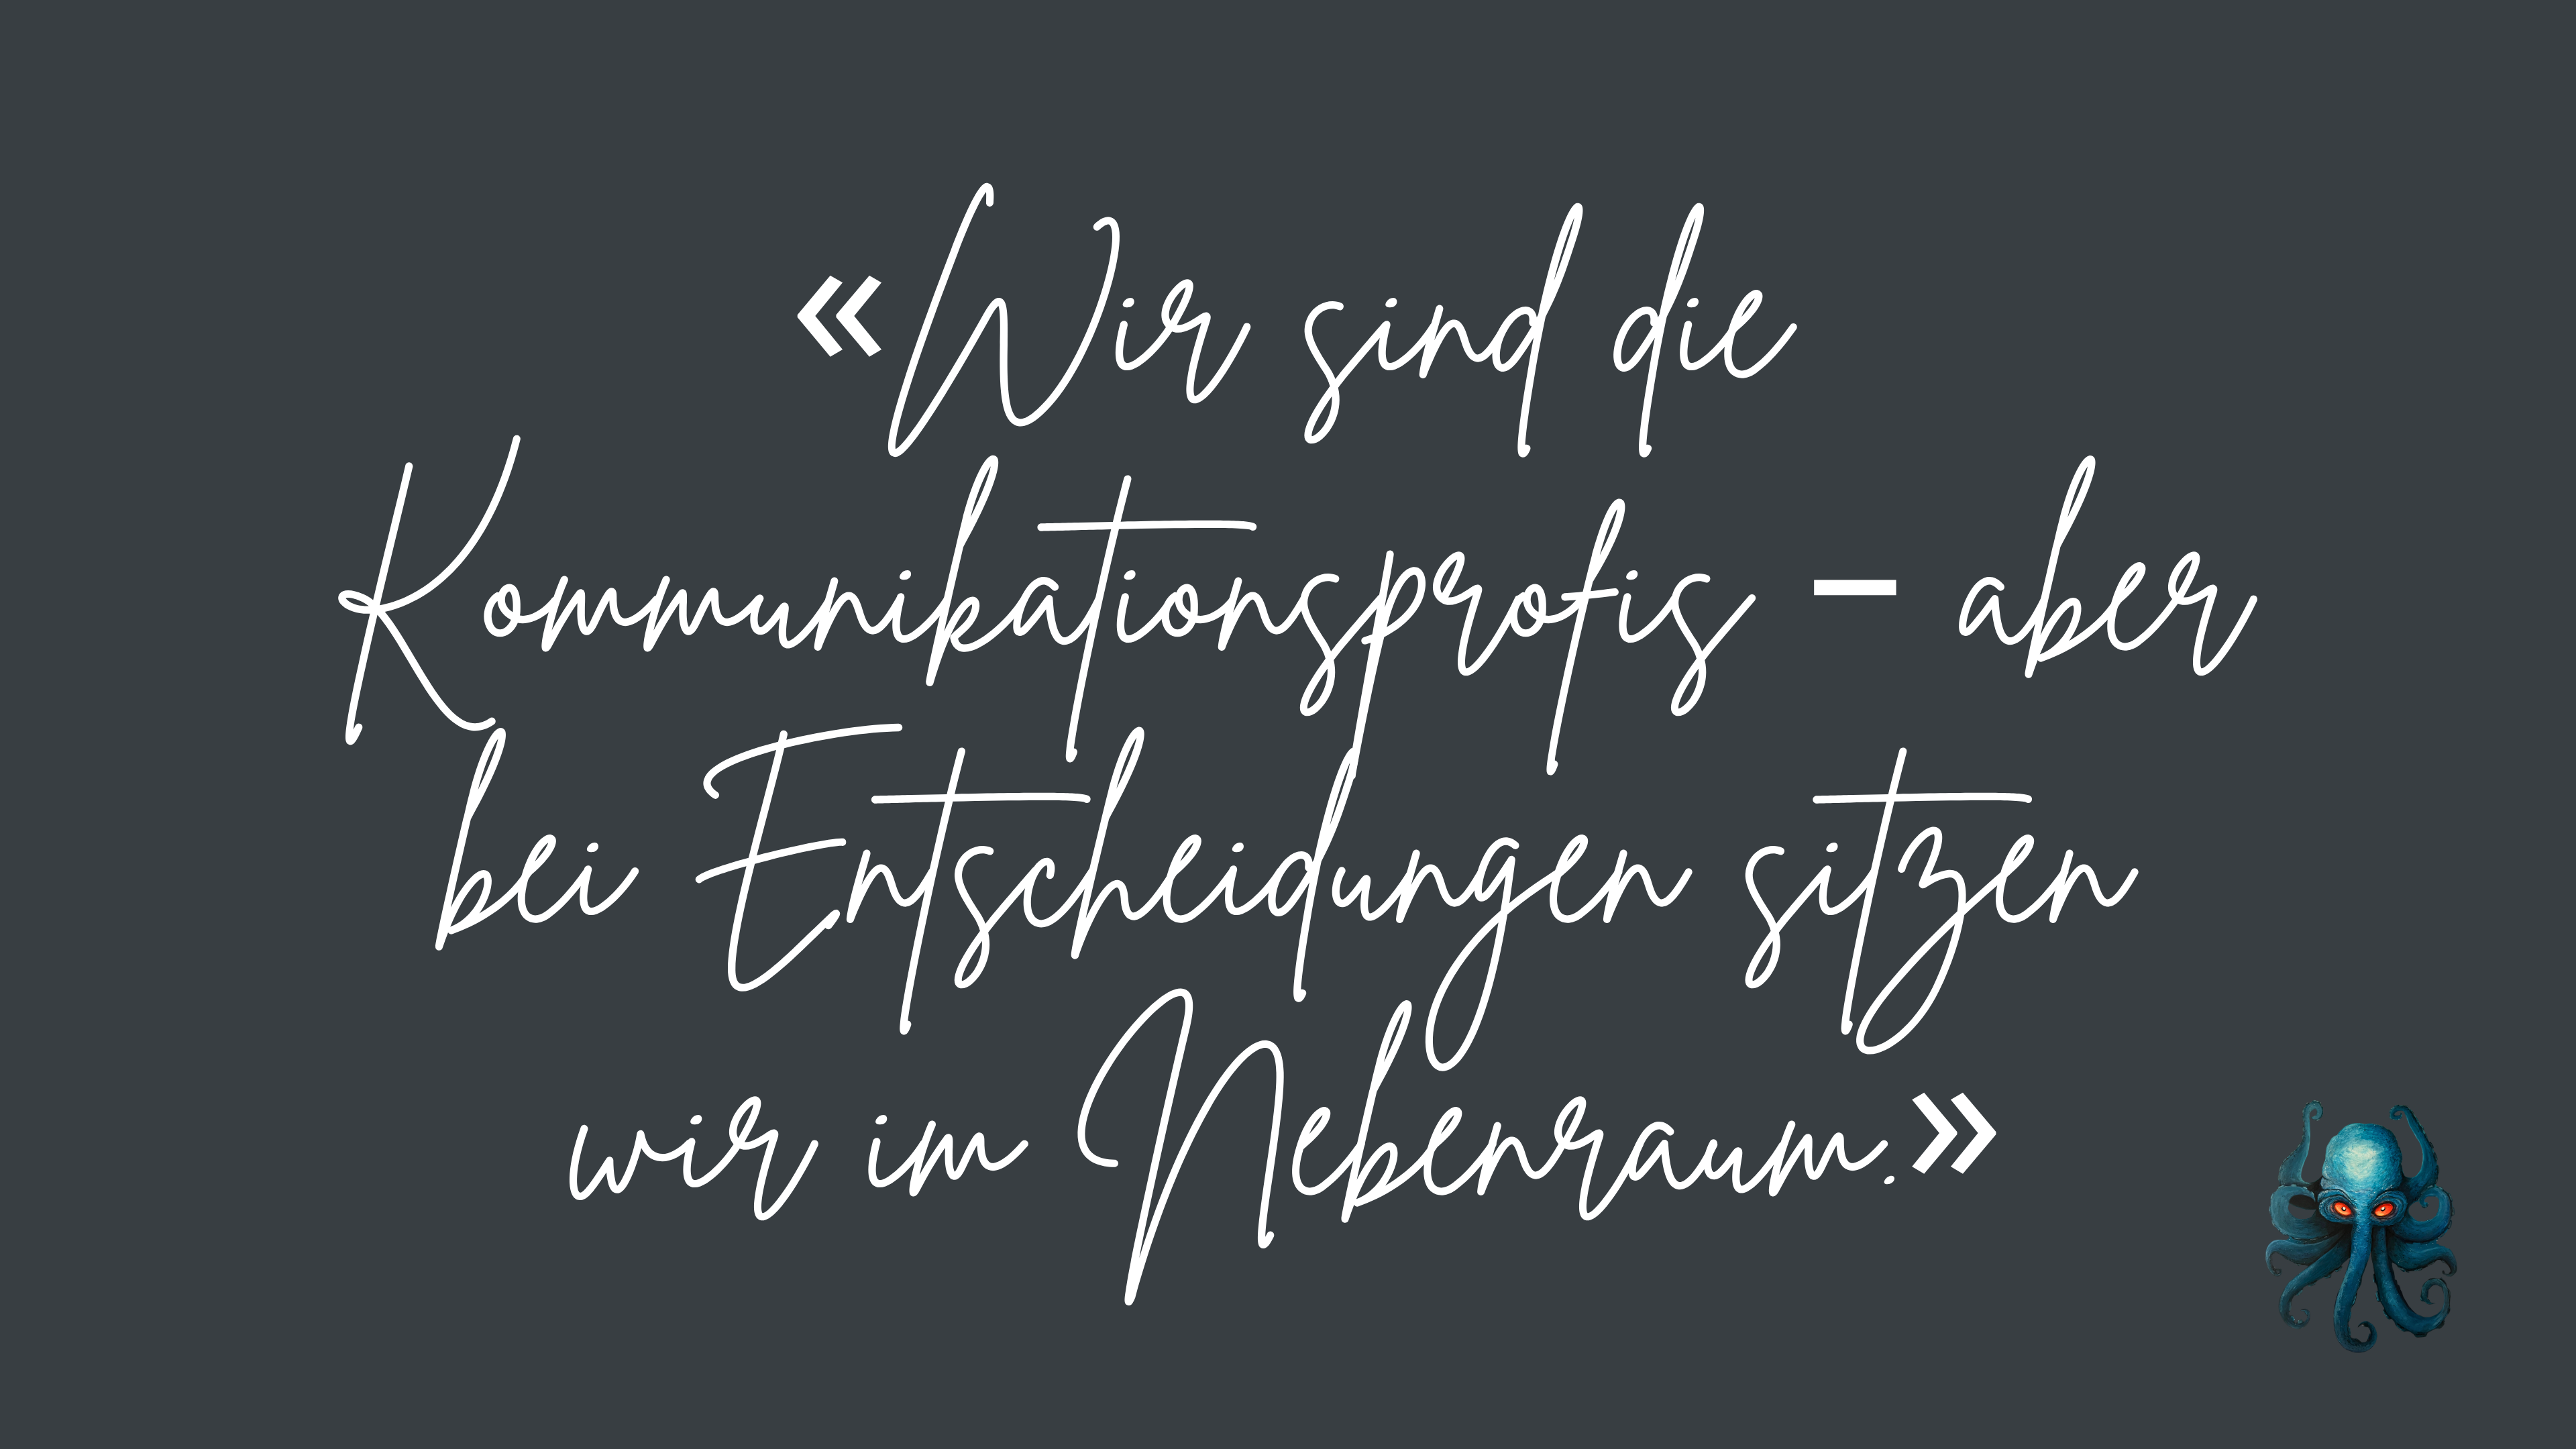 «Wir sind die
Kommunikationsprofis – aber
bei Entscheidungen sitzen
wir im Nebenraum.»